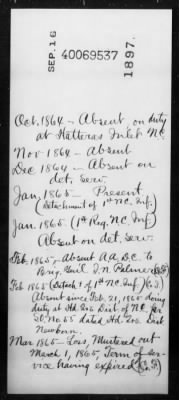 SEP. 16
40069537
1897.
Oct. 1864 – Absent, on duty
at Hatteras Inlet N.C.
Nov 1864 – Absent
Dec 1864 – Absent on
det. serv.
Jan. 1865 – Present
(Detachment of 1st N.C. Inf.)
Jan. 1865. (1st Reg. N.C. Inf)
Absent on det. serv.
Feb. 1865 – Absent A.A.D.C. to
Brig. Genl I. N. Palmer
Feb 1865 (Detach't of 1st N.C. Inf.)
Absent since Feb. 21, 1865 doing
duty at Hd. Qrs Dist of N.C. per
S.O. No. 55 dated Hd. Qrs. Dist
Newbern.
Mar 1865 – Loss, Mustered out
March 1, 1865, Term of ser-
vice having expired